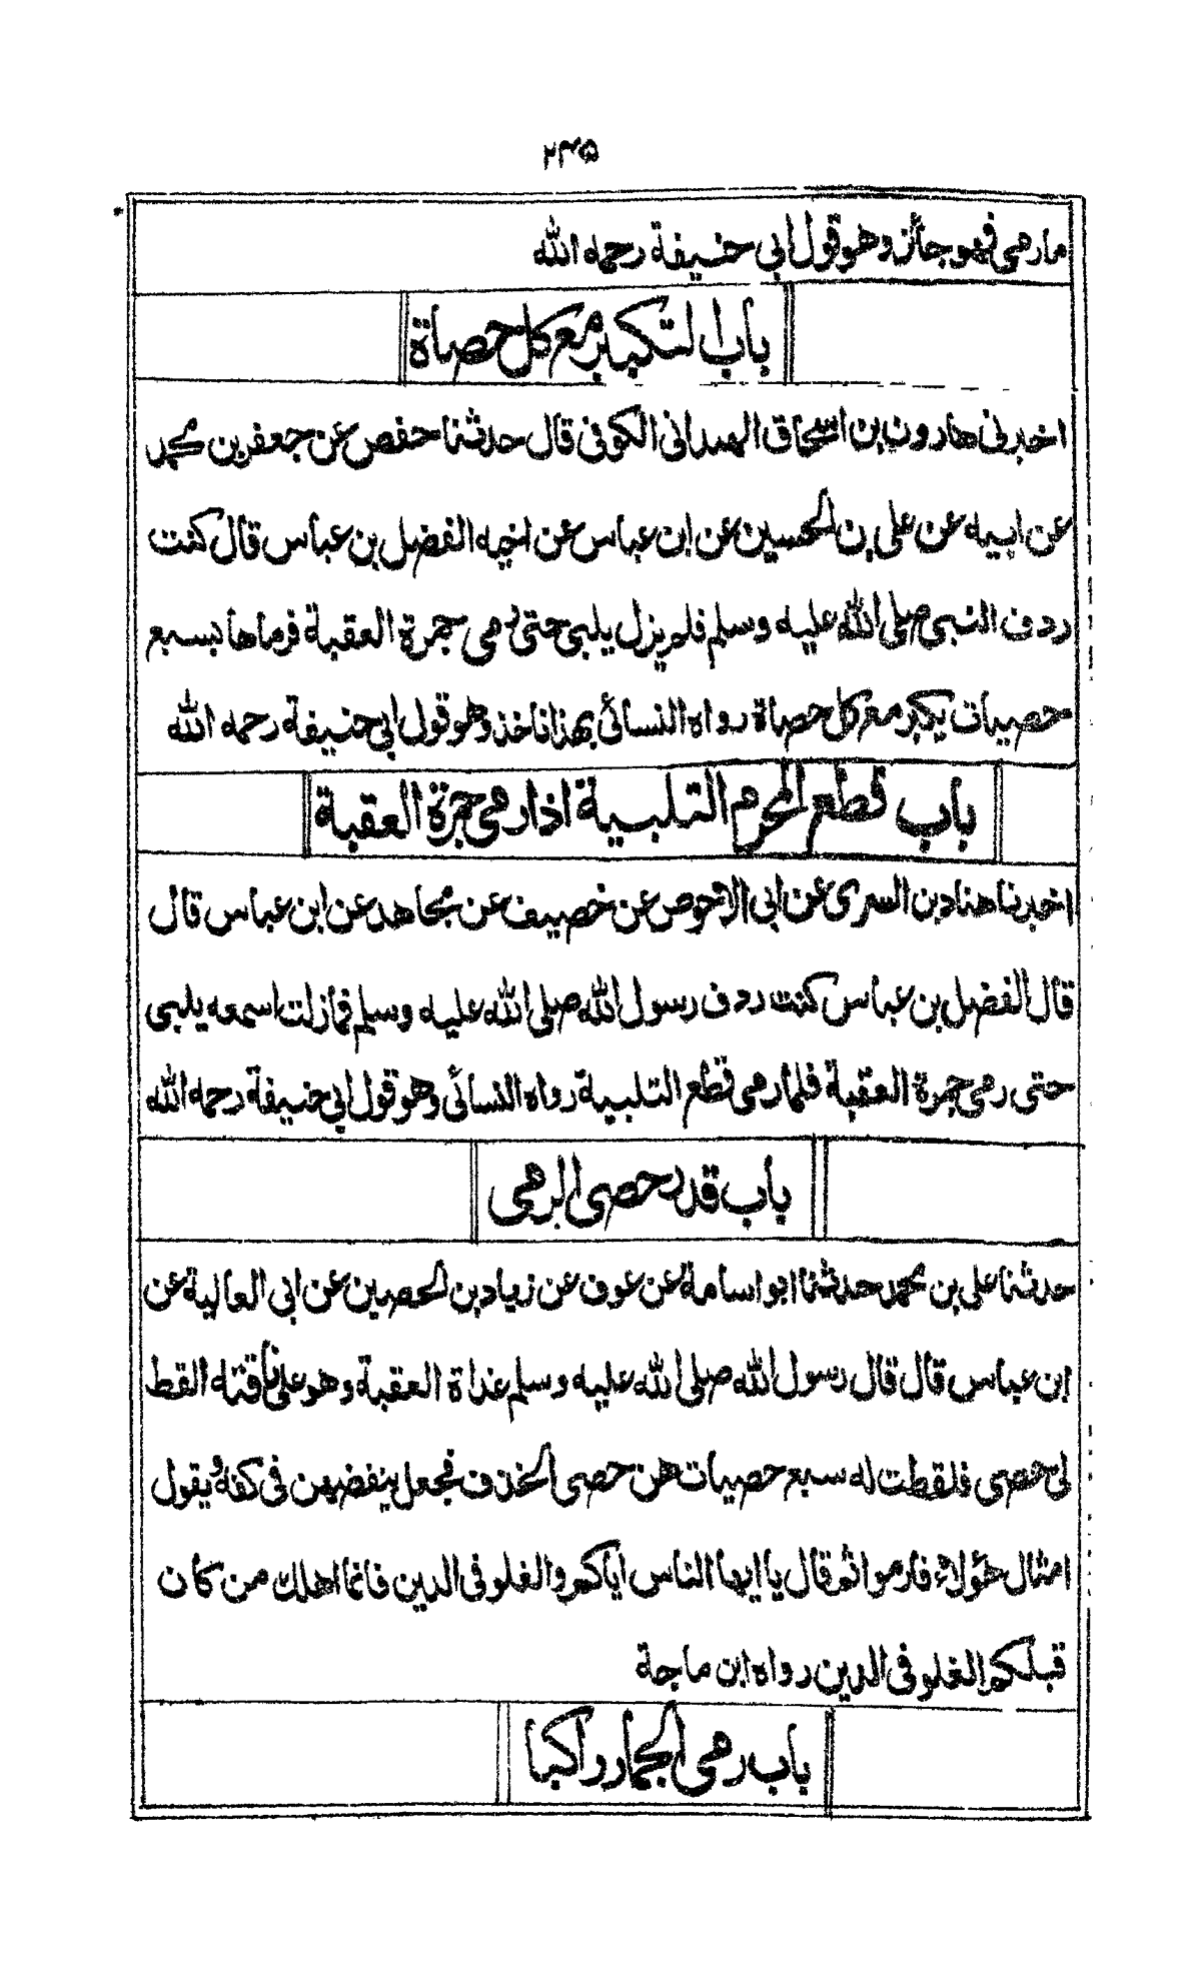 ۲۳۵
مارمى فهو جائز وهو قول ابى حنيفة رحمه الله
باب التكبير مع كل حصاة
اخبرنى هارون بن اسحاق الهمدانى الكوفى قال حدثنا حفص عن جعفر بن محمد
عن ابيه عن على بن الحسين عن ابن عباس عن اخيه الفضل بن عباس قال كنت
ردف النبى صلى الله عليه وسلم فلم يزل يلبى حتى رمى جمرة العقبة فرماها بسبع
حصيات يكبر مع كل حصاة رواه النسائى بهذا ناخذ وهو قول ابى حنيفة رحمه الله
باب قطع المحرم التلبية اذا رمى جمرة العقبة
اخبرنا هناد بن السرى عن ابى الاحوص عن خصيف عن مجاهد عن ابن عباس قال
قال الفضل بن عباس كنت ردف رسول الله صلى الله عليه وسلم فما زلت اسمعه يلبى
حتى رمى جمرة العقبة فلما رمى قطع التلبية رواه النسائى وهو قول ابى حنيفة رحمه الله
باب قدر حصى الرمى
حدثنا على بن محمد حدثنا ابو اسامة عن عوف عن زياد بن الحصين عن ابى العالية عن
ابن عباس قال قال رسول الله صلى الله عليه وسلم غداة العقبة وهو على ناقته القط
لى حصى فلقطت له سبع حصيات هن حصى الخذف فجعل ينفضهن فى كفه ويقول
امثال هؤلاء فارموا ثم قال يا ايها الناس اياكم والغلو فى الدين فانما اهلك من كان
قبلكم الغلو فى الدين رواه ابن ماجة
باب رمى الجمار راكبا